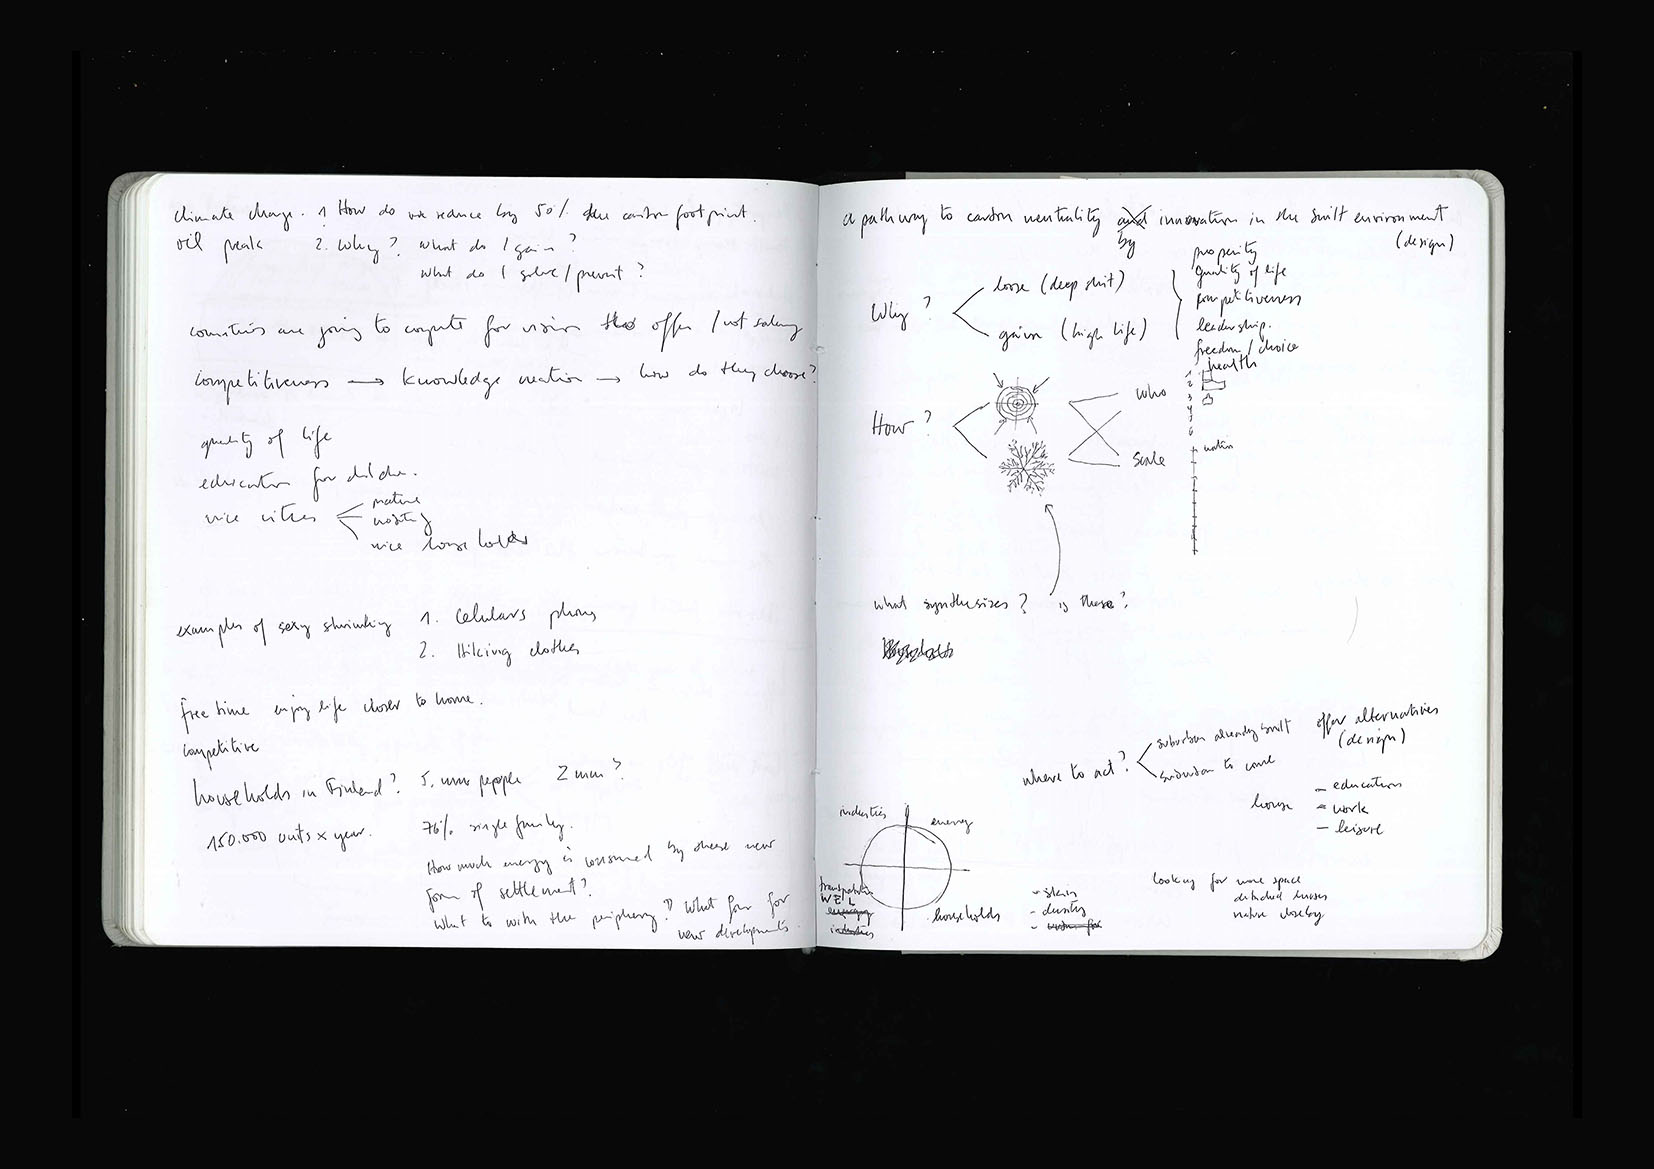 climate change. 1 How do we reduce by 50% the carbon footprint.
oil peak 2. Why? What do I gain?
What do I solve/prevent?
countries are going to compete for vision offer / not salary
competitiveness → knowledge creation → how do they choose?
quality of life
education for
nice cities
nature
nice house
examples of sexy shrinking 1. Celulars phons
2. Hiking clothes
free time enjoy life closer to home.
competitive
households in Finland? 5. mm people 2 mm?
150.000 units x year. 76% single family.
How much energy is consumed by these new
form of settlement?
What to with the periphery? What for for
new developments.
a pathway to carbon neutrality and innovation in the built environment
by
(design)
Why?
loose (deep shit)
gain (high life)
properity
quality of life
competitiveness
leadership.
freedom / choice
health
How?
who
1
2
3
4
5
6
scale
nation
what synthesizes? is these?
where to act?
suburban already built
suburban to come
offer alternatives
(design)
house
– education
– work
– leisure
industries
energy
households
W E L
energy
industries
- skin
- density
looking for more space
detached houses
nature closeby